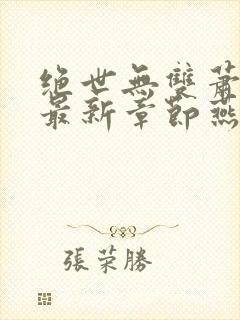 絕世無雙蕭
最新章節燕
張荣勝